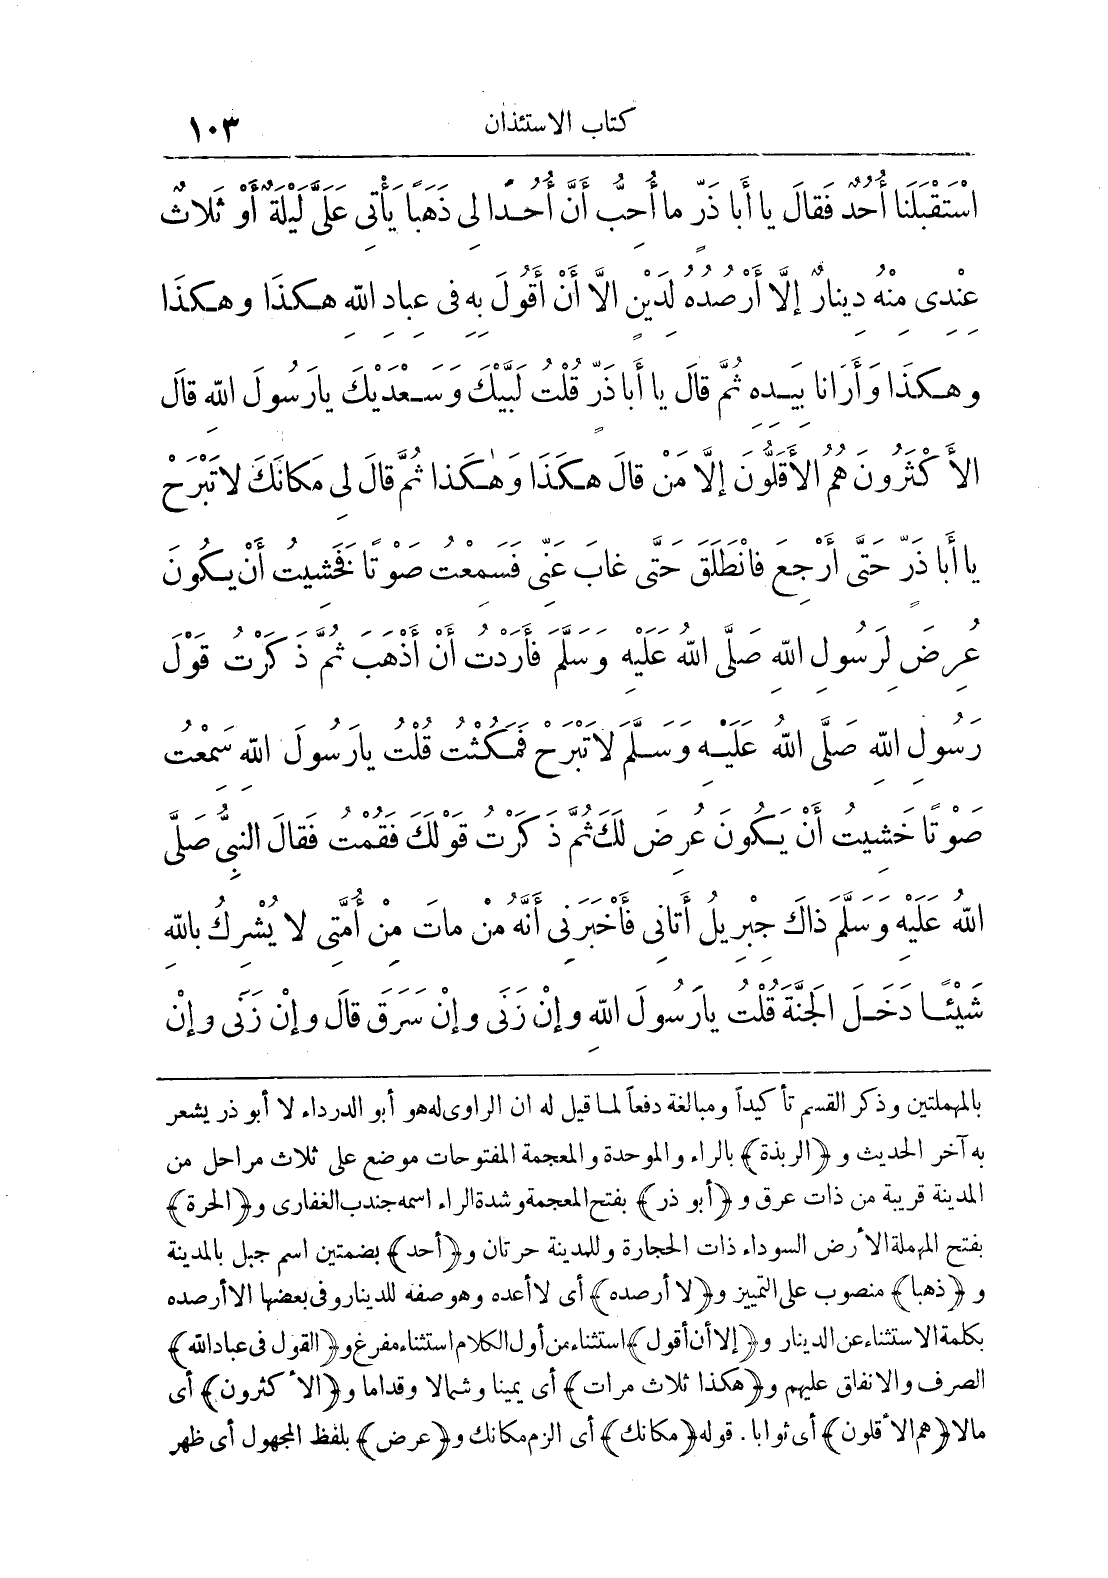 كتاب الاستئذان ١٠٣
اسْتَقْبَلَنَا أُحُدٌ فَقَالَ يا أَبا ذَرٍّ ما أُحِبُّ أَنَّ أُحُدًا لِى ذَهَبًا يَأْتِى عَلَىَّ لَيْلَةٌ أَوْ ثَلاثٌ
عِنْدِى مِنْهُ دِينارٌ إلَّا أَرْصُدُهُ لِدَيْنٍ الَّا أَنْ أَقُولَ بِهِ فِى عِبادِ اللهِ هكَذَا وهكَذَا
وهكَذَا وَأَرَانا بِيَدِهِ ثُمَّ قالَ يا أَباذَرٍّ قُلْتُ لَبَّيْكَ وَسَعْدَيْكَ يارَسُولَ اللهِ قالَ
الأَكْثَرُونَ هُمُ الأَقَلُّونَ إلَّا مَنْ قالَ هكَذَا وَهٰكَذا ثُمَّ قالَ لِى مَكانَكَ لاتَبْرَحْ
يا أَبا ذَرٍّ حَتَّى أَرْجِعَ فانْطَلَقَ حَتَّى غابَ عَنِّى فَسَمِعْتُ صَوْتًا فَخَشِيتُ أَنْ يَكُونَ
عُرِضَ لِرَسُولِ اللهِ صَلَّى اللهُ عَلَيْهِ وَسَلَّمَ فأَرَدْتُ أَنْ أَذْهَبَ ثُمَّ ذَكَرْتُ قَوْلَ
رَسُولِ اللهِ صَلَّى اللهُ عَلَيْهِ وَسَلَّمَ لاتَبْرَحْ فَمَكُثْتُ قُلْتُ يارَسُولَ اللهِ سَمِعْتُ
صَوْتًا خَشِيتُ أَنْ يَكُونَ عُرِضَ لَكَ ثُمَّ ذَكَرْتُ قَوْلَكَ فَقُمْتُ فَقالَ النَّبِىُّ صَلَّى
اللهُ عَلَيْهِ وَسَلَّمَ ذاكَ جِبْرِيلُ أَتانِى فَأَخْبَرَنِى أَنَّهُ مَنْ ماتَ مِنْ أُمَّتِى لا يُشْرِكُ بِاللهِ
شَيْئًا دَخَلَ الجَنَّةَ قُلْتُ يارَسُولَ اللهِ وإنْ زَنَى وإنْ سَرَقَ قالَ وإنْ زَنَى وإنْ
بالمهملتين وذكر القسم تأكيداً ومبالغة دفعاً لما قيل له ان الراوى له هو أبو الدرداء لا أبو ذر يشعر
به آخر الحديث و ﴿الربذة﴾ بالراء والموحدة والمعجمة المفتوحات موضع على ثلاث مراحل من
المدينة قريبة من ذات عرق و ﴿أبو ذر﴾ بفتح المعجمة وشدة الراء اسمه جندب الغفارى و﴿الحرة﴾
بفتح المهملة الأرض السوداء ذات الحجارة وللمدينة حرتان و﴿أحد﴾ بضمتين اسم جبل بالمدينة
و ﴿ذهبا﴾ منصوب على التمييز و﴿لا أرصده﴾ أى لا أعده وهو صفة للدينار وفى بعضها الا أرصده
بكلمة الاستثناء عن الدينار و﴿إلا أن أقول﴾ استثناء من أول الكلام استثناء مفرغ و﴿القول فى عباد الله﴾
الصرف والانفاق عليهم و﴿هكذا ثلاث مرات﴾ أى يمينا وشمالا وقداما و﴿الأكثرون﴾ أى
مالا ﴿هم الأقلون﴾ أى ثوابا. قوله ﴿مكانك﴾ أى الزم مكانك و﴿عرض﴾ بلفظ المجهول أى ظهر